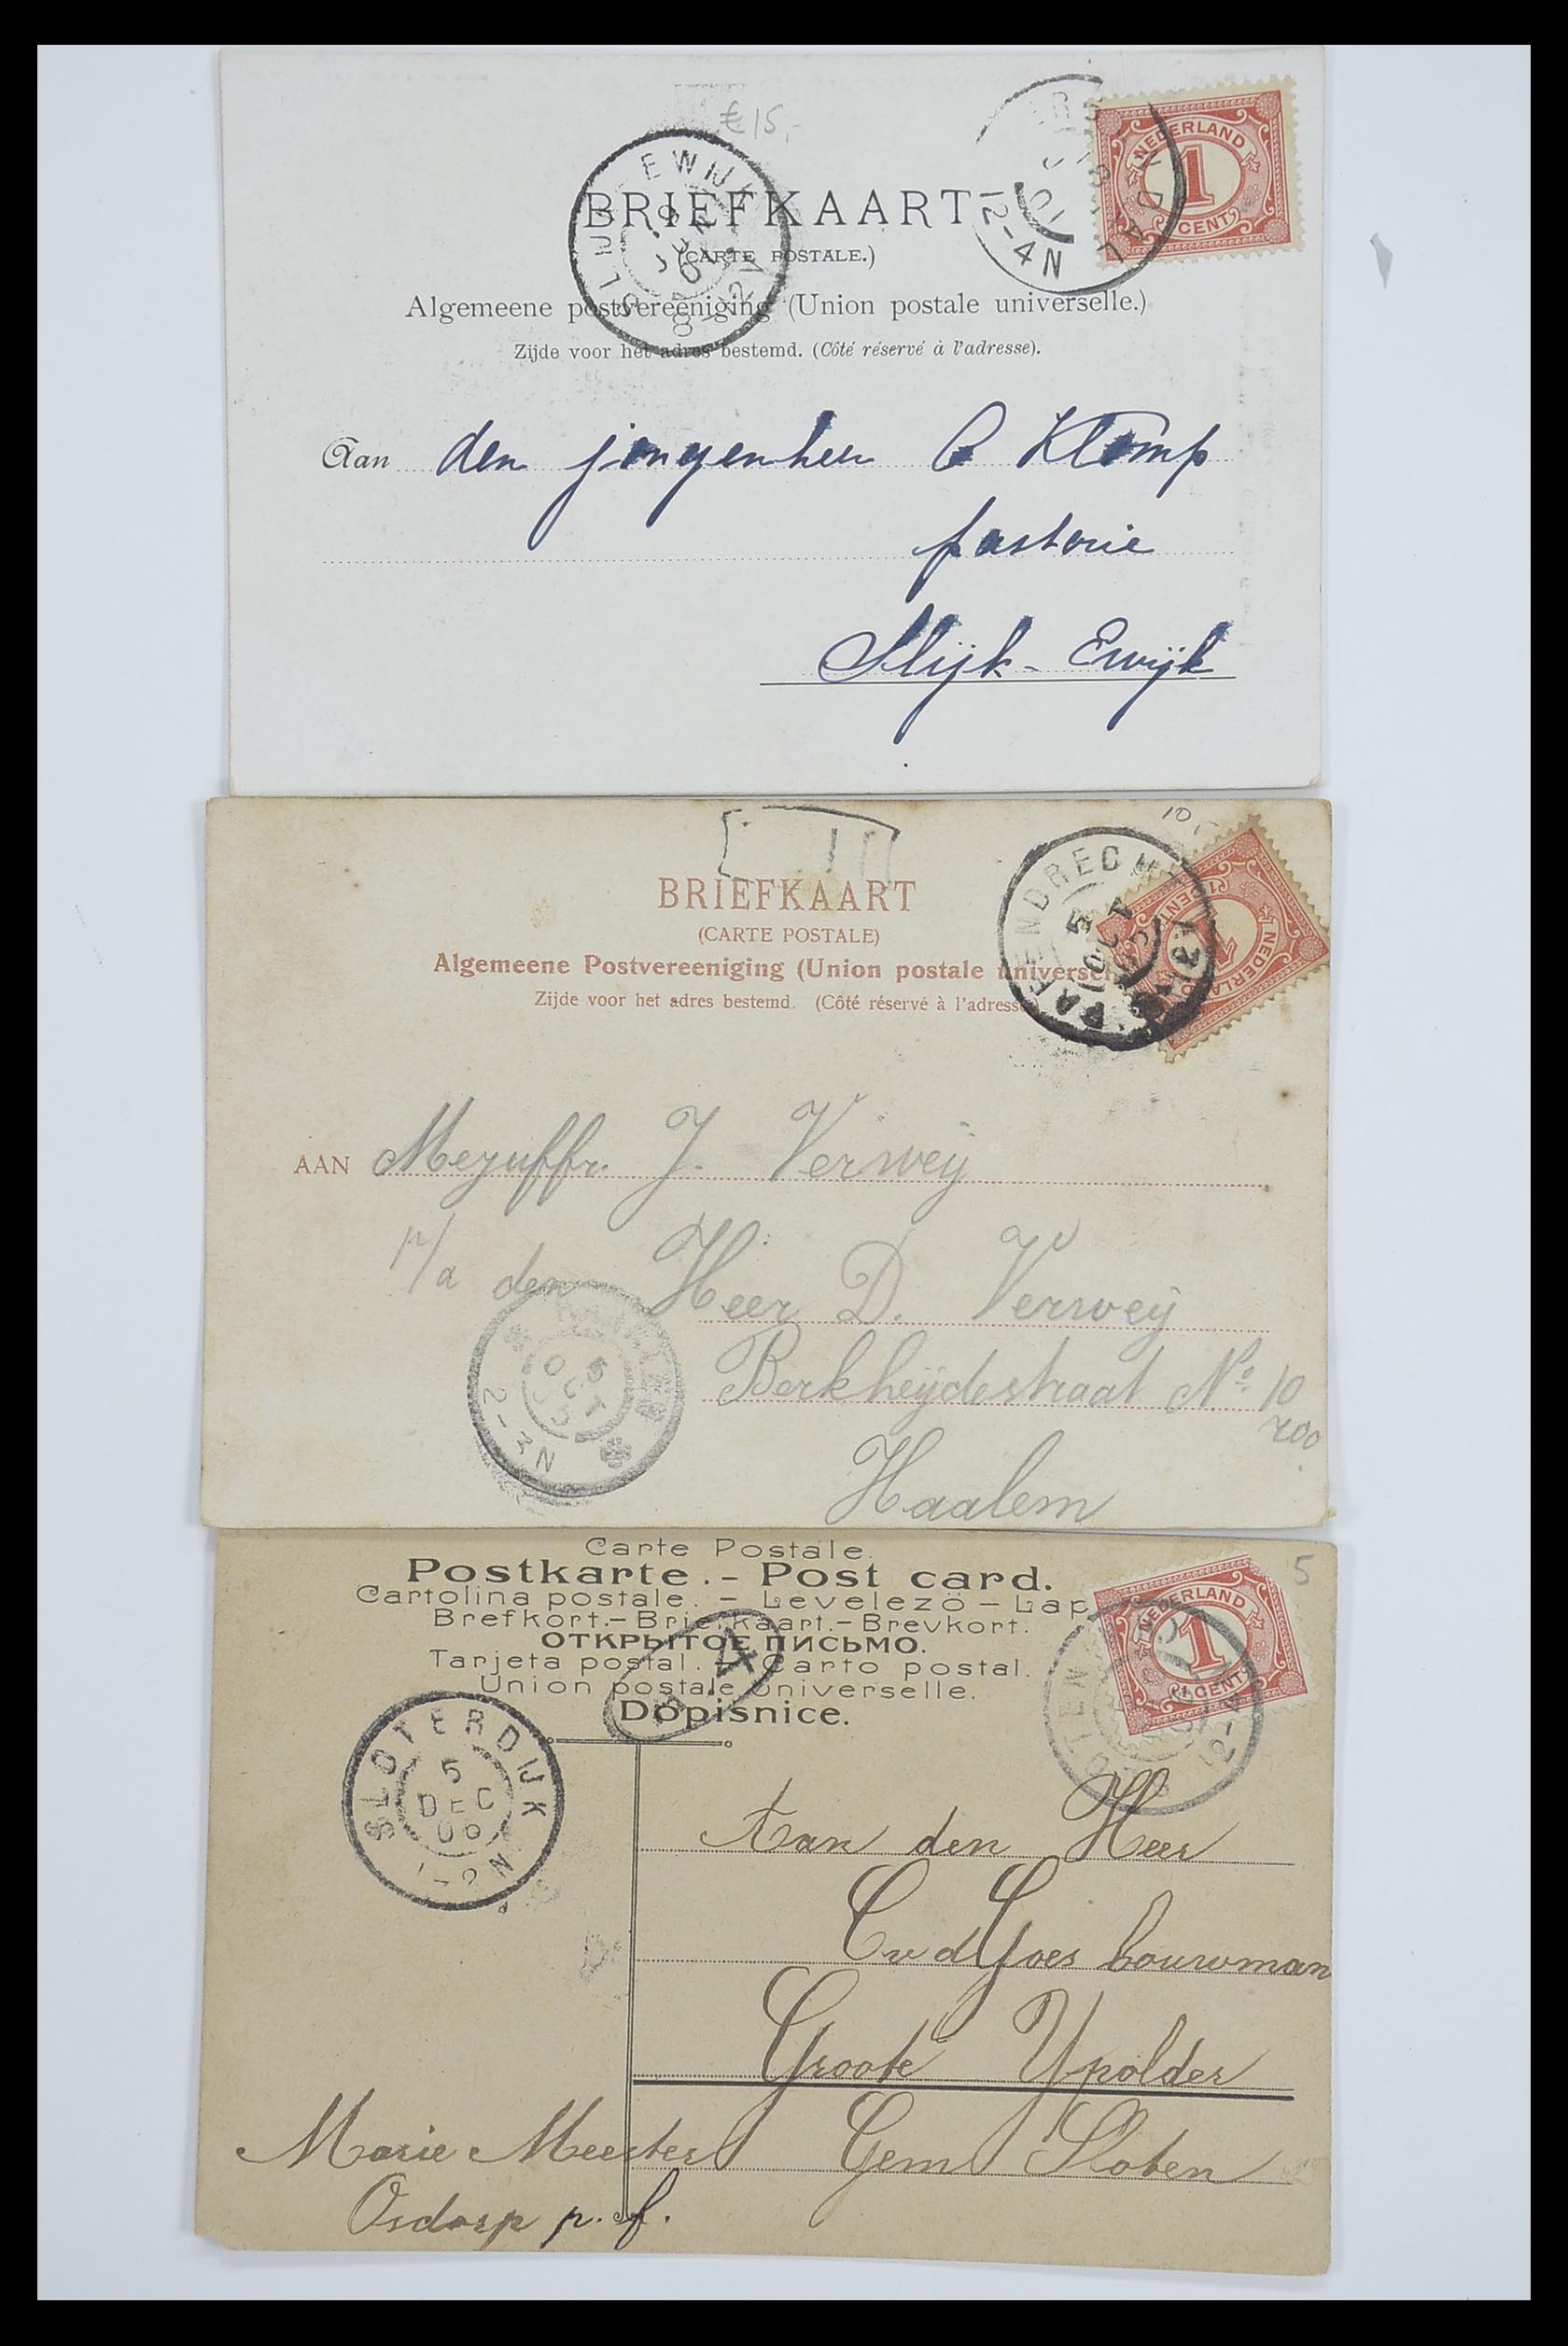 € 15,-
BRIEFKAART
(CARTE POSTALE.)
Algemeene postvereeniging (Union postale universelle.)
Zijde voor het adres bestemd. (Côté réservé à l'adresse).
NEDERLAND
1
CENT
12-4N
Aan den jongenheer C Klomp
pastorie
Slijk-Ewijk
10,-
BRIEFKAART
(CARTE POSTALE)
Algemeene Postvereeniging (Union postale universel
Zijde voor het adres bestemd. (Côté réservé à l'adresse
NEDERLAND
1
CENT
5
OCT
AAN Mejuffr. J. Verweij
p/a den Heer D. Verweij
Berkheijdestraat No. 10
roo
Haalem
5
OCT
2-3N
Carte Postale.
Postkarte.- Post card.
Cartolina postale. - Levelezö - Lap
Brefkort.- Briefkaart.- Brevkort.
ОТКРЫТОЕ ПИСЬМО.
Tarjeta postal. - Carto postal.
Union postale universelle.
Dopisnice.
5
NEDERLAND
1
1 CENT
4
SLOTERDIJK
5
DEC
06
1-2N
Aan den Heer
C v d Goes bouwman
Groote IJpolder
Gem Sloten
Marie Meester
Osdorp p. f.